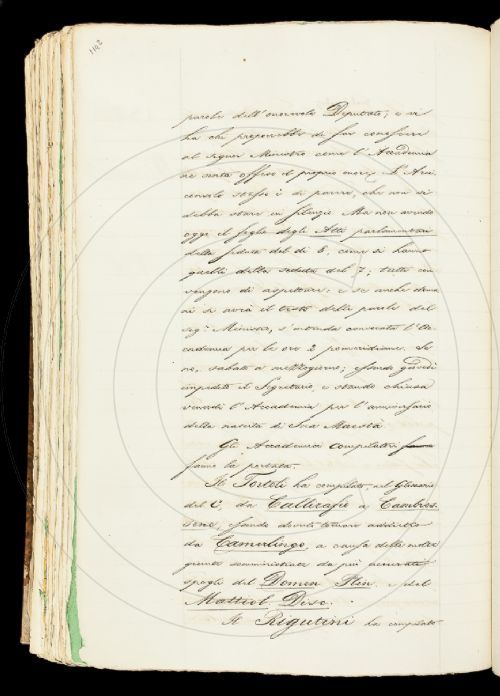 1142
parole dell'onorevole Deputato; e vi
ha chi proporrebbe di far conoscere
al signor Ministro come l'Accademia
ne senta offeso il proprio onore. L'Arci
consolo stesso è di parere, che non si
debba stare in silenzio. Ma non avendo
oggi il foglio degli Atti parlamentari
della seduta del dì 6, come si hanno
quelli della seduta del 7; tutti con
vengono di aspettare: e se anche doma
ni si avrà il testo delle parole del
sig.r Ministro, s'intenda convocata l'Ac
cademia per le ore 2 pomeridiane. Se
no, sabato a mezzogiorno; essendo giovedì
impedito il Segretario, e stando chiusa
venerdì l'Accademia per l'anniversario
della nascita di Sua Maestà.
Gli Accademici Compilatori
fanno la portata.
Il Tortoli ha compilato, nel Glossario
del C, da Callizafio a Cambres
sene, essendo dovuto tornare addietro
da Camerlingo, a causa delle molte
giunte somministrate da più accurati
spogli del Domen. Flin. e del
Mattiol. Disc.
Il Rigutini ha compilato